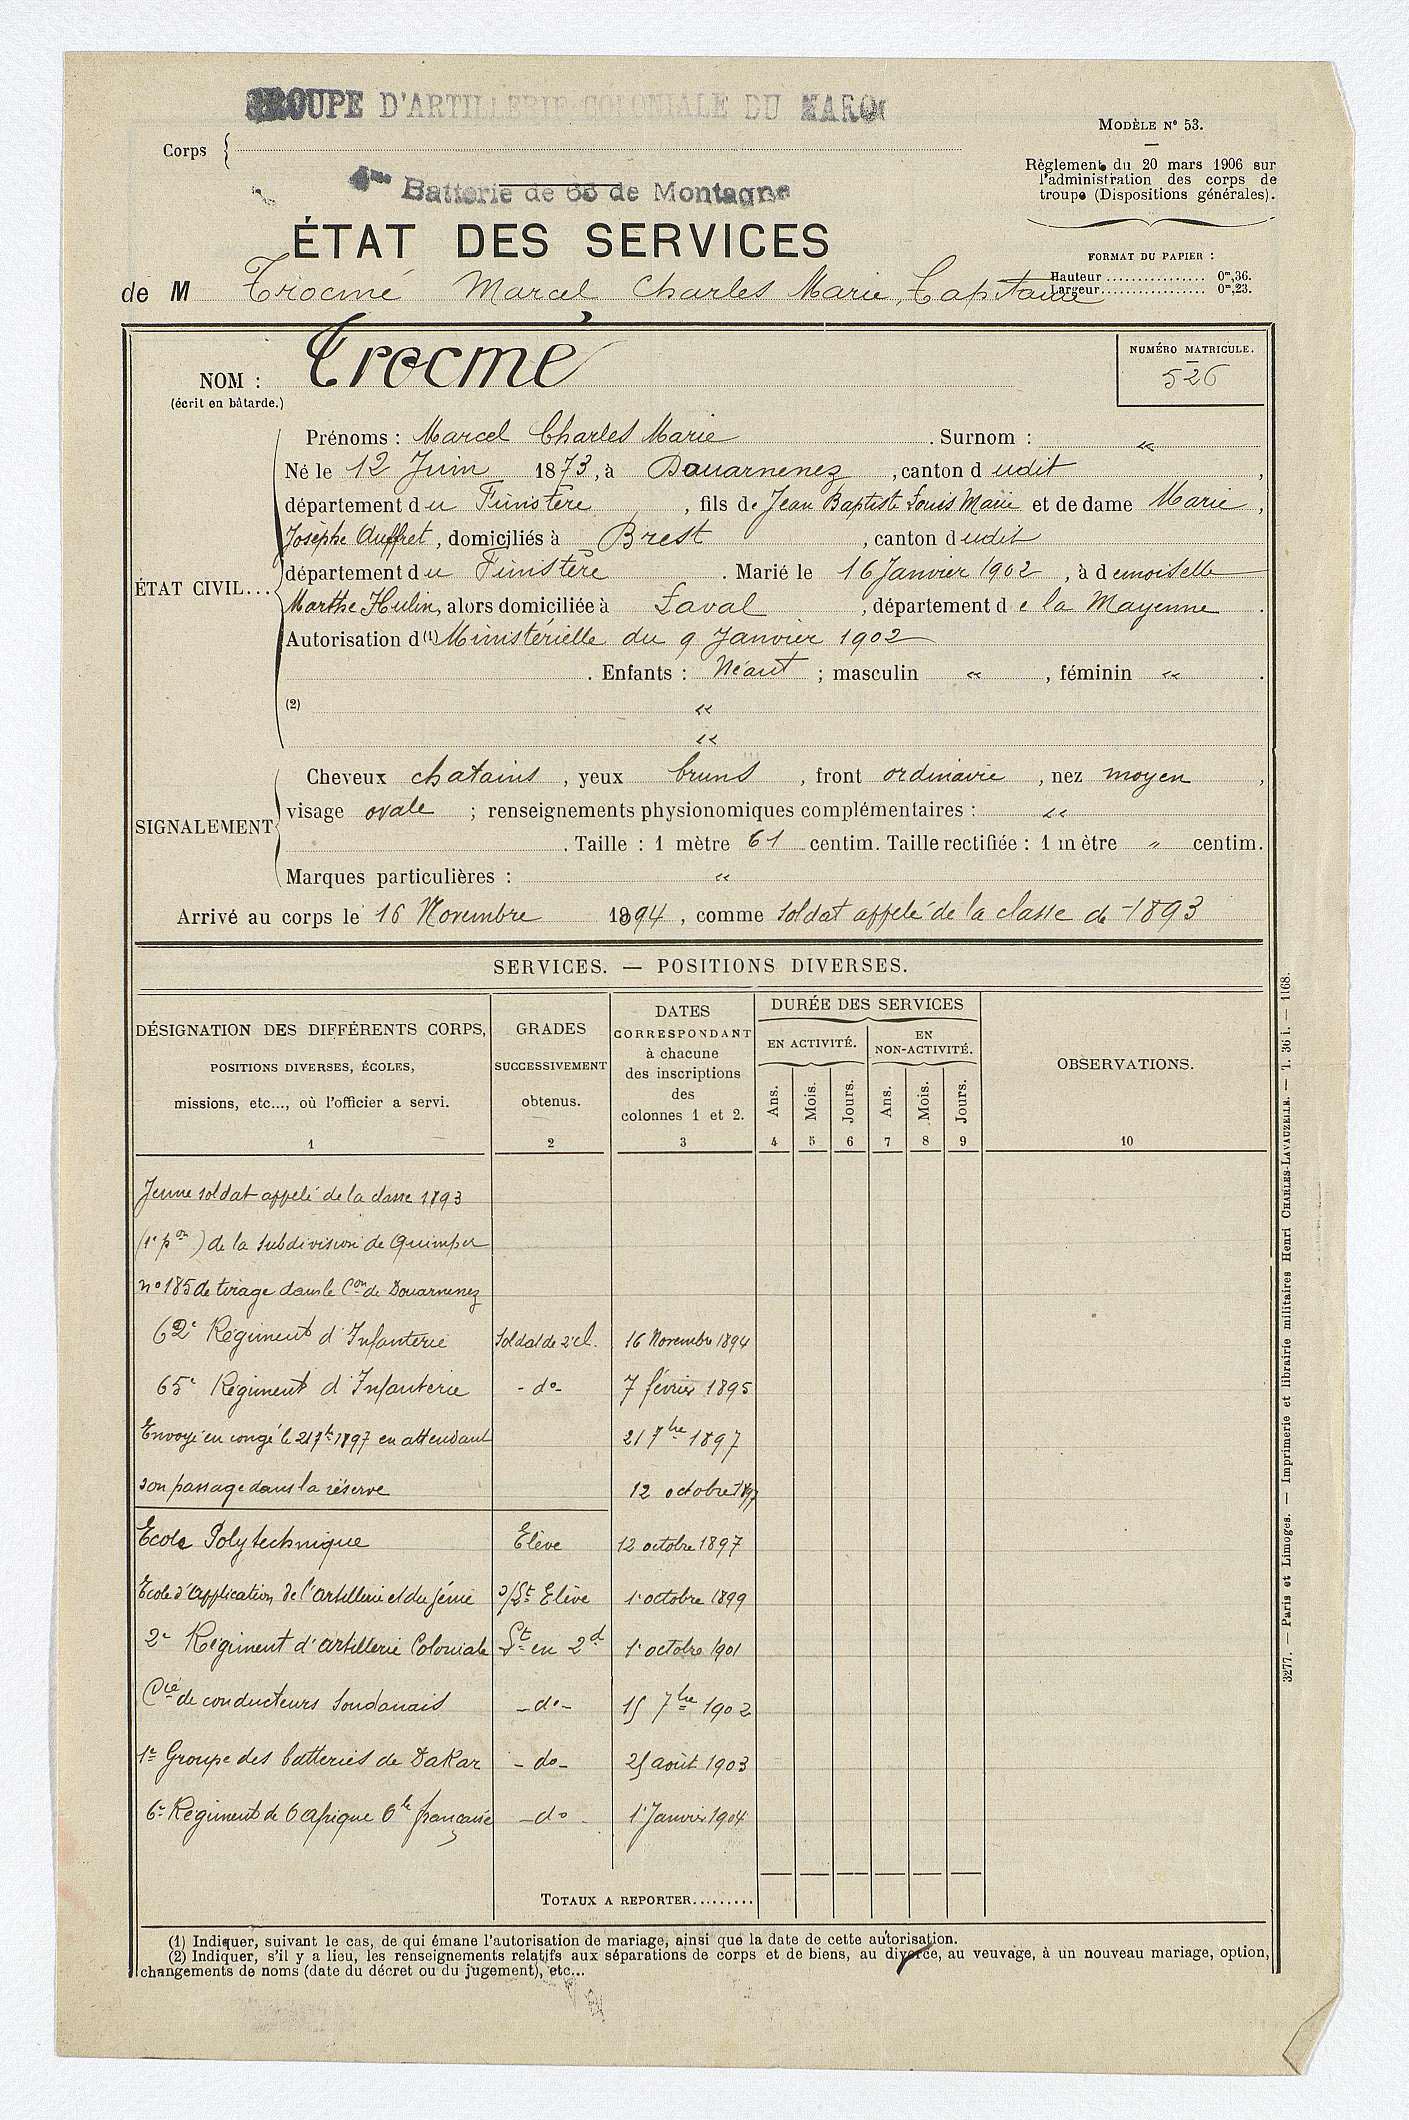 GROUPE D'ARTILLERIE COLONIALE DU MAROC
Corps
4me Batterie de 65 de Montagne
MODÈLE N° 53.
Règlement du 20 mars 1906 sur
l'administration des corps de
troupe (Dispositions générales).
ÉTAT DES SERVICES
FORMAT DU PAPIER :
Hauteur ................ 0m,36.
Largeur ................ 0m,23.
de M Trocmé Marcel Charles Marie, Capitaine
NOM : Trocmé
(écrit en bâtarde.)
NUMÉRO MATRICULE.
526
ÉTAT CIVIL...
Prénoms : Marcel Charles Marie . Surnom : "
Né le 12 Juin 1873, à Douarnenez , canton dudit ,
département du Finistère , fils de Jean Baptiste Louis Marie et de dame Marie ,
Josèphe Auffret, domiciliés à Brest , canton dudit
département du Finistère . Marié le 16 Janvier 1902 , à demoiselle
Marthe Hulin, alors domiciliée à Laval , département de la Mayenne .
Autorisation d(1) Ministérielle du 9 Janvier 1902
. Enfants : Néant ; masculin " , féminin " .
(2) "
"
SIGNALEMENT
Cheveux chatains , yeux bruns , front ordinaire , nez moyen ,
visage ovale ; renseignements physionomiques complémentaires : "
. Taille : 1 mètre 61 centim. Taille rectifiée : 1 mètre " centim.
Marques particulières : "
Arrivé au corps le 16 Novembre 1894 , comme soldat appelé de la classe de 1893
SERVICES. — POSITIONS DIVERSES.
DÉSIGNATION DES DIFFÉRENTS CORPS,
POSITIONS DIVERSES, ÉCOLES,
missions, etc..., où l'officier a servi.
1
GRADES
SUCCESSIVEMENT
obtenus.
2
DATES
CORRESPONDANT
à chacune
des inscriptions
des
colonnes 1 et 2.
3
DURÉE DES SERVICES
EN ACTIVITÉ.
EN
NON-ACTIVITÉ.
Ans. Mois. Jours. Ans. Mois. Jours.
4 5 6 7 8 9
OBSERVATIONS.
10
Jeune soldat appelé de la classe 1893
(1e pon) de la subdivision de Quimper
n° 185 de tirage dans le Con de Douarnenez
62e Régiment d'Infanterie Soldat de 2e cl. 16 Novembre 1894
65e Régiment d'Infanterie - do - 7 février 1895
Envoyé en congé le 21 7bre 1897 en attendant 21 7bre 1897
son passage dans la réserve 12 octobre 1897
Ecole Polytechnique Elève 12 octobre 1897
Ecole d'Application de l'artillerie et du génie s/Lt Elève 1e octobre 1899
2e Régiment d'artillerie Coloniale Lt en 2d 1e octobre 1901
Cie de conducteurs Soudanais - do - 15 7bre 1902
1er Groupe des batteries de Dakar - do - 25 août 1903
6e Régiment de l'Afrique Ole française - do - 1e Janvier 1904
TOTAUX A REPORTER.........
(1) Indiquer, suivant le cas, de qui émane l'autorisation de mariage, ainsi que la date de cette autorisation.
(2) Indiquer, s'il y a lieu, les renseignements relatifs aux séparations de corps et de biens, au divorce, au veuvage, à un nouveau mariage, option,
changements de noms (date du décret ou du jugement), etc...
3277. — Paris et Limoges. — Imprimerie et librairie militaires Henri CHARLES-LAVAUZELLE. — T. 36 i. — 1168.